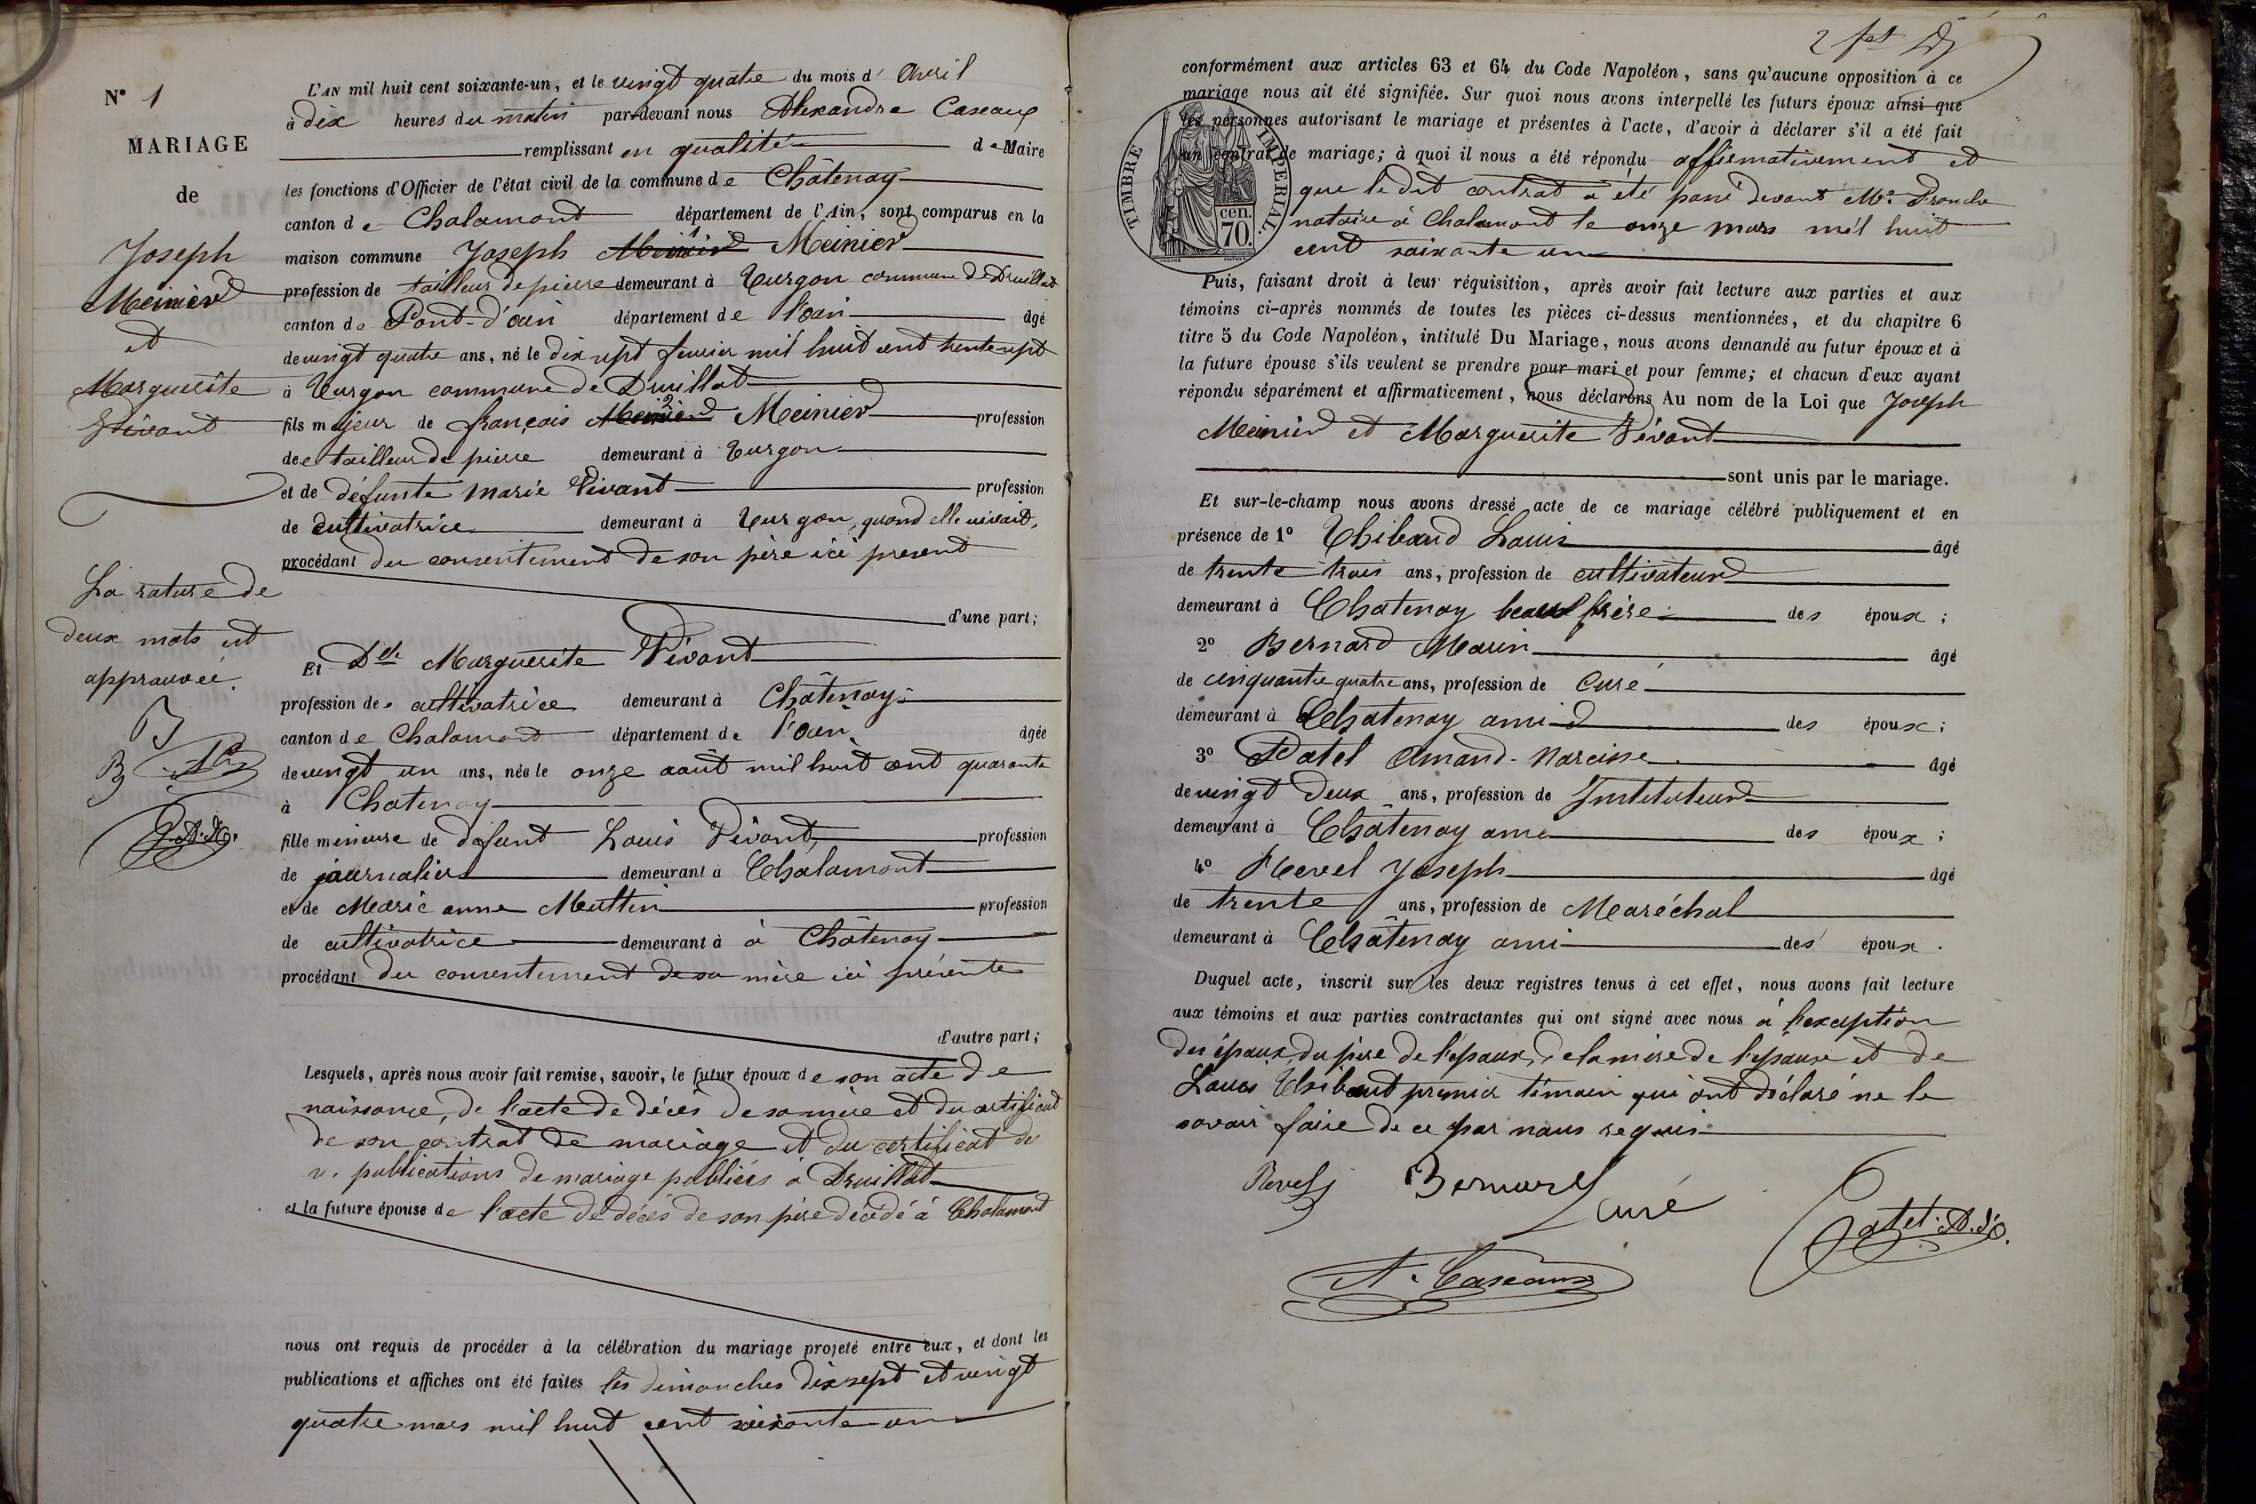 N° 1
MARIAGE
de
Joseph
Meinier
et
Marguerite
Vivant
La rature de
deux mots est
approuvée.
L'AN mil huit cent soixante-un, et le vingt quatre du mois d' Avril
à dix heures du matin par-devant nous Alexandre Caseaux
remplissant en qualité de Maire
les fonctions d'Officier de l'état civil de la commune de Châtenay
canton de Chalamont département de l'Ain, sont comparus en la
maison commune Joseph Meinier
profession de tailleur de pierre demeurant à Turgon commune de Druillat
canton de Pont-d'ain département de l'ain âgé
de vingt quatre ans, né le dix sept fevrier mil huit cent trente sept
à Turgon commune de Druillat
fils majeur de françois Meinier profession
de tailleur de pierre demeurant à Turgon
et de défunte marie Vivant profession
de cultivatrice demeurant à Turgon, quand elle vivait,
procédant du consentement de son père ici present
d'une part;
Et Dlle Marguerite Vivant
profession de cultivatrice demeurant à Châtenay
canton de Chalamont département de l'ain âgée
de vingt un ans, née le onze août mil huit cent quarante
à Chatenay
fille mineure de défunt Louis Vivant profession
de journalier demeurant à Chalamont
et de Marie anne Muttin profession
de cultivatrice demeurant à à Châtenay
procédant du consentement de sa mère ici présente
d'autre part;
Lesquels, après nous avoir fait remise, savoir, le futur époux de son acte de
naissance, de l'acte de décès de sa mère et du certificat
de son contrat de mariage et du certificat de
publications de mariage publiées à Druillat
et la future épouse de l'acte de décès de son père décédé à Chalamont
nous ont requis de procéder à la célébration du mariage projeté entre eux, et dont les
publications et affiches ont été faites les dimanches dix sept et vingt
quatre mars mil huit cent soixante un
conformément aux articles 63 et 64 du Code Napoléon, sans qu'aucune opposition à ce
mariage nous ait été signifiée. Sur quoi nous avons interpellé les futurs époux ainsi que
les personnes autorisant le mariage et présentes à l'acte, d'avoir à déclarer s'il a été fait
un contrat de mariage; à quoi il nous a été répondu affirmativement et
que le dit contrat a été passé devant Me
notaire à Chalamont le onze mars mil huit
cent soixante un
TIMBRE IMPÉRIAL.
cen.
70.
Puis, faisant droit à leur réquisition, après avoir fait lecture aux parties et aux
témoins ci-après nommés de toutes les pièces ci-dessus mentionnées, et du chapitre 6
titre 5 du Code Napoléon, intitulé Du Mariage, nous avons demandé au futur époux et à
la future épouse s'ils veulent se prendre pour mari et pour femme; et chacun d'eux ayant
répondu séparément et affirmativement, nous déclarons Au nom de la Loi que Joseph
Meinier et Marguerite Vivant
sont unis par le mariage.
Et sur-le-champ nous avons dressé acte de ce mariage célébré publiquement et en
présence de 1° Thibaud Louis âgé
de trente trois ans, profession de cultivateur
demeurant à Chatenay beau frère des époux;
2° Bernard Marin âgé
de cinquante quatre ans, profession de Curé
demeurant à Chatenay ami des époux;
3° Patel Amand-Narcisse âgé
de vingt deux ans, profession de Instituteur
demeurant à Châtenay ami des époux;
4° Revel Joseph âgé
de trente ans, profession de Maréchal
demeurant à Châtenay ami des époux.
Duquel acte, inscrit sur les deux registres tenus à cet effet, nous avons fait lecture
aux témoins et aux parties contractantes qui ont signé avec nous à l'exception
des époux, du père de l'époux, de la mère de l'épouse et de
Louis Thibaut premier témoin qui ont déclaré ne le
savoir faire de ce par nous requis
Revel J
Bernard
curé
Patel. A. N.
A. Caseaux